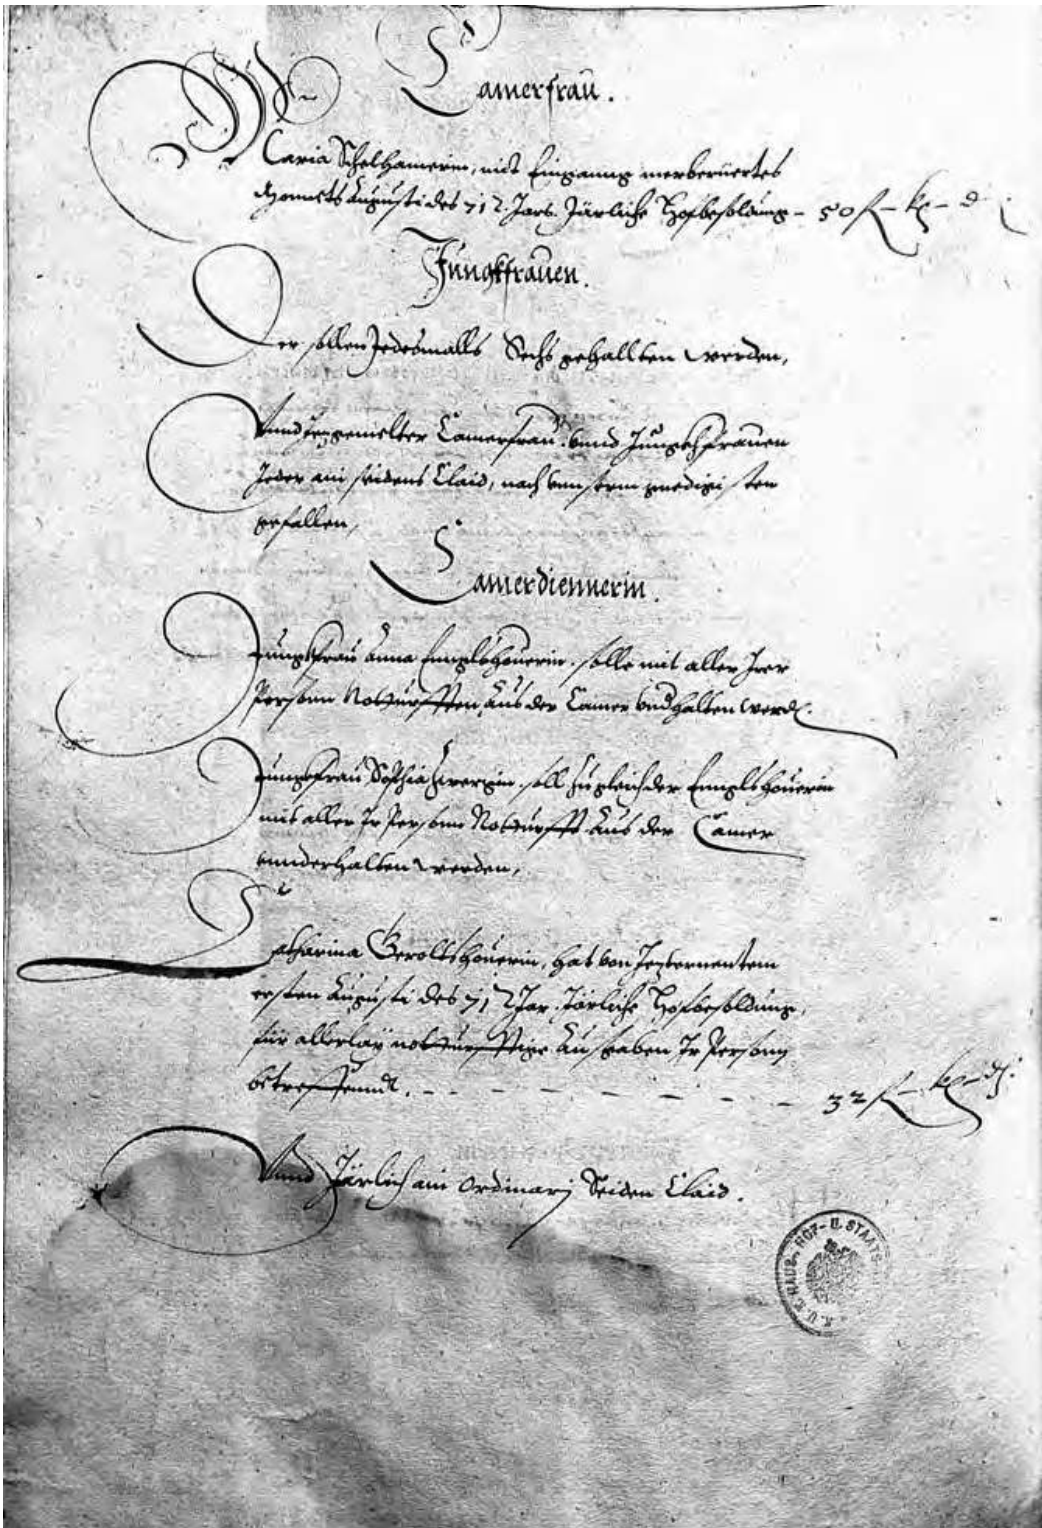 Camerfrau.
Maria Schelhamerin, mit Einganng merberüertes
Monnets Augusti des 71 2. Jars. Järliche Hofbesoldung – 50 fl – kr – d
Jungkfrauen.
Der sollen Jedesmalls Sechs gehallten werden,
Vnnd Camerfrau vnnd Jungckhfrauen
Jeder ain seidens Claid, nach vnnserm genedigisten
gefallen,
Camerdiennerin.
Jungkfrau Anna solle mit aller Irer
Person Notturfften Aus der Camer vndhalten werd.
Jungkfrau Sophia soll zugleich der
mit aller Ir Person Notturfft Aus der Camer
vnnderhalten werden,
Catharina Geroltzhouerin, hat von
ersten Augusti des 71 2 Jar. Järliche Hofbesoldung,
für allerlay notturfftige Ausgaben Ir Person
betreffennd. – – – – – – 32 fl – kr – d.
Vnnd Järlich ain ordinarj Seiden Claid.
K. U. K. HAUS-, HOF- U. STAATS-